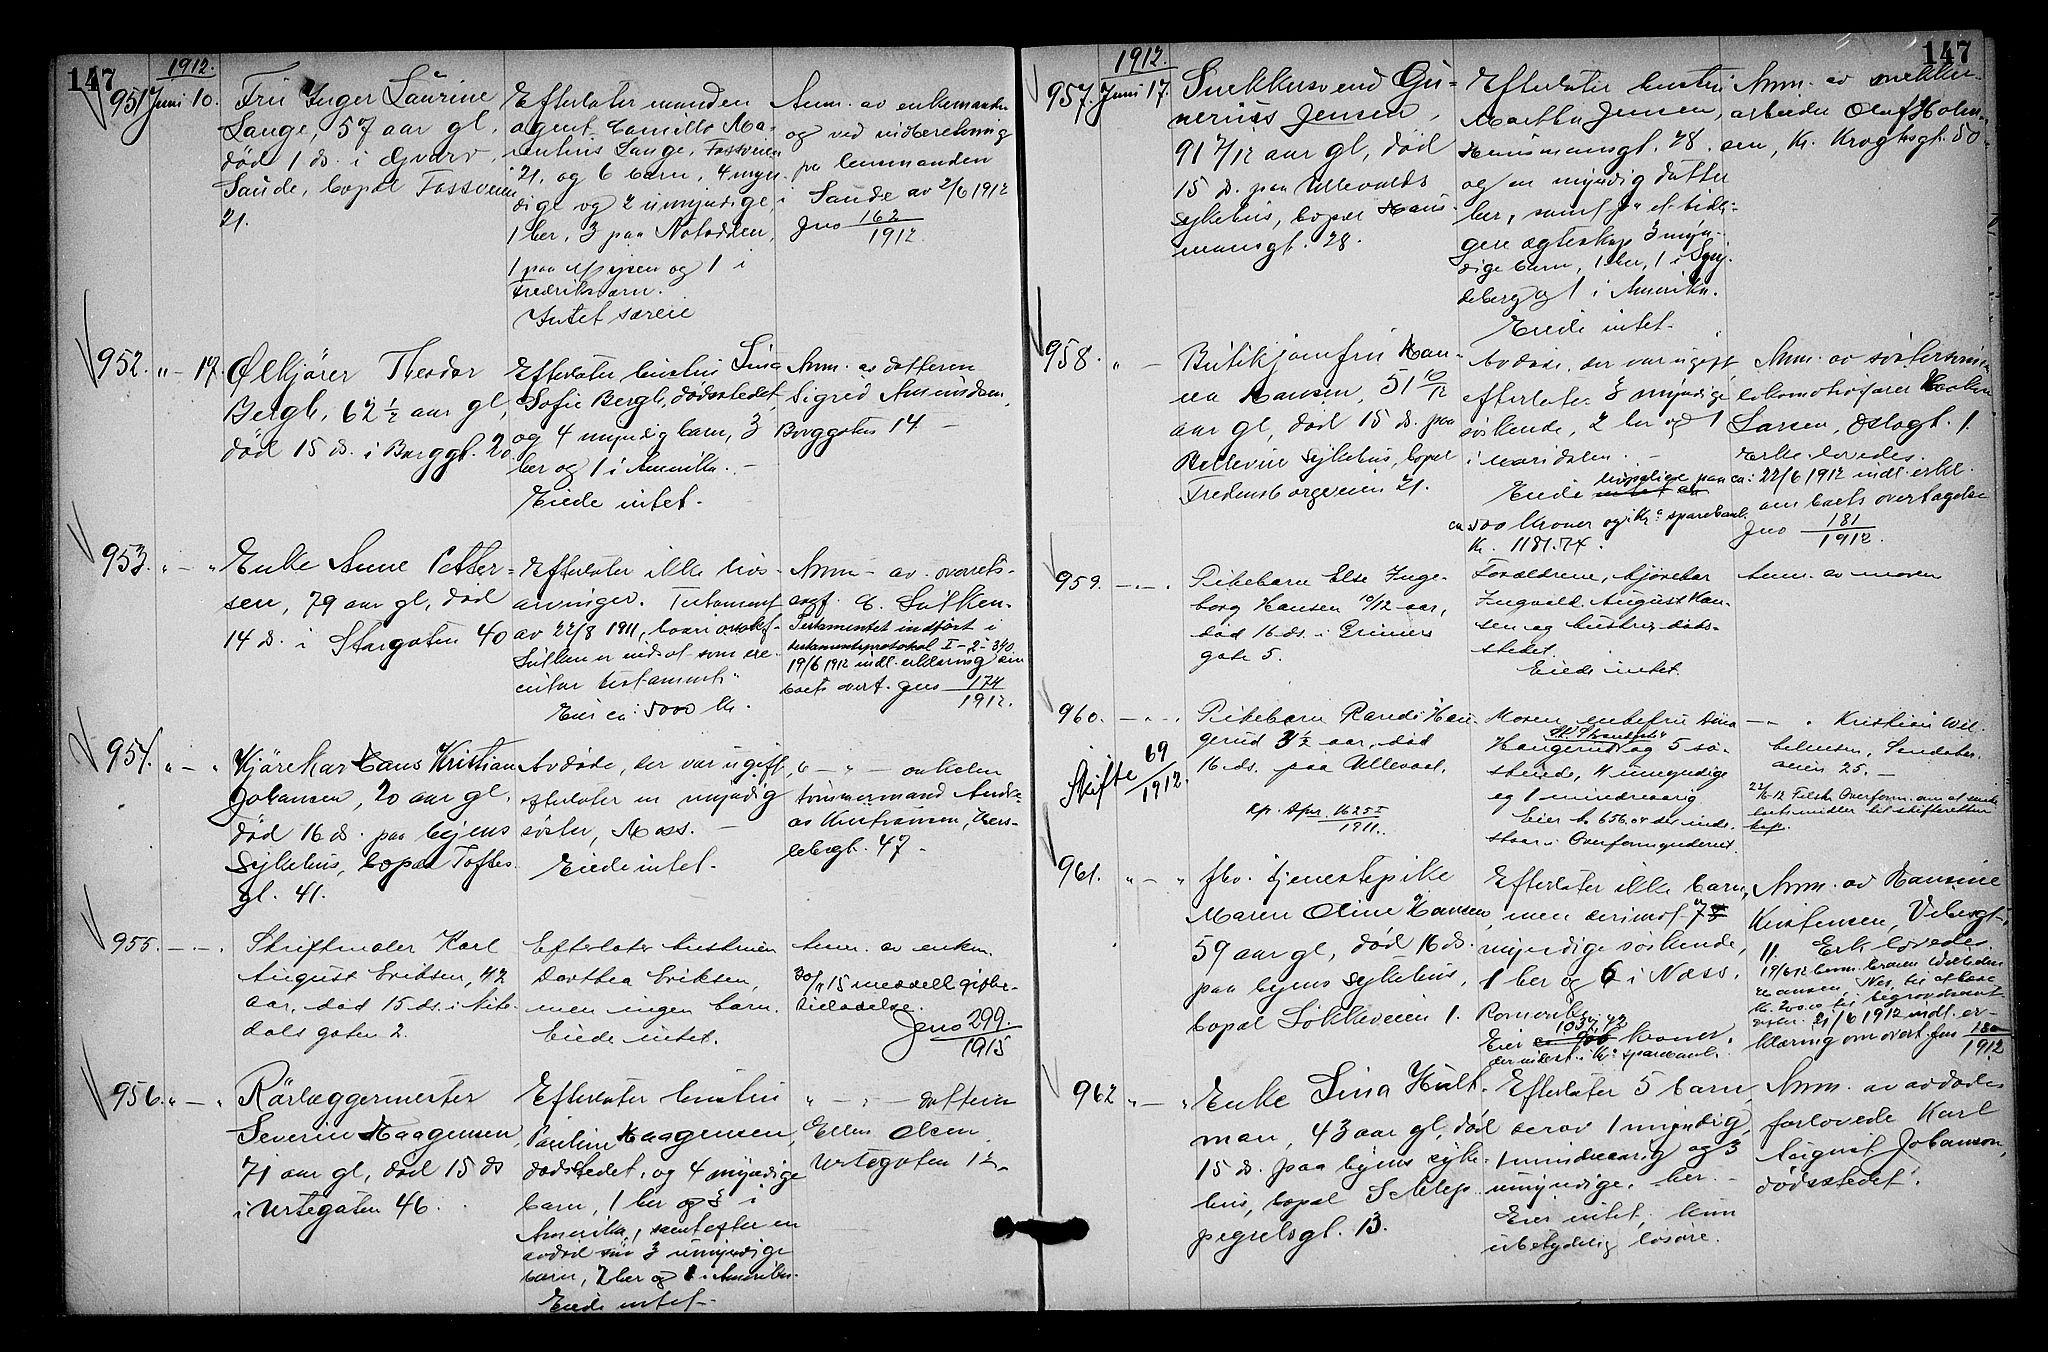 147
1912.
951 Juni 10.
Fru Inger Laurine
Lange, 57 aar gl,
död 1 ds. i Gvarv
Saude, bopæl Fossveien
21.
Efterlater manden
agent Camillo Ma-
rentius Lange, Fossveien
21, og 6 barn, 4 myn-
dige og 2 umyndige,
1 her, 3 paa Notodden,
1 paa Mysen og 1 i
Fredriksværn.
Intet særeie
Anm. av enkemanden
og ved indberetning
fra lensmanden
i Saude av 2/6 1912
Jno 162/1912.
952. " - 17.
Ölkjörer Theodor
Bergh, 62 1/2 aar gl,
död 15 ds. i Borggt. 20.
Efterlater hustru Lina
Sofie Bergh, dødsstedet,
og 4 myndig barn, 3
her og 1 i Amerika. -
Eiede intet.
Anm. av datteren
Sigrid Amundsen,
Borggaten 14. -
953. " - "
Enke Anne Petter-
sen, 79 aar gl, död
14 ds. i Storgaten 40
Efterlater ikke livs-
arvinger. Testament
av 22/8 1911, hvori o.r.sakf.
Lütken er indsat som exe-
cutor testamenti.
Eier ca: 5000 kr.
Anm. av overrets-
sagf. C. Lütken.
Testamentet indfört i
testamentsprotokol I-2-340.
19/6 1912 indl. erklæring om
boets overt. Jno 174/1912.
954. " - "
Kjörekar Hans Kristian
Johansen, 20 aar gl.
död 16 ds. paa byens
sykehus, bopæl Toftes
gt. 41.
Avdöde, der var ugift,
efterlater en myndig
söster, Moss. -
Eiede intet.
" - " - onkelen
tömmermand Andre-
as Kristiansen, Hers-
lebsgt. 47.
955. - " -
Skriftmaler Karl
August Eriksen, 42
aar, död 15 ds. i Nit-
dals gaten 2.
Efterlater hustruen
Dorthea Eriksen,
men ingen barn.
Eiede intet.
Anm. av enken.
30/4 15 meddelt gifte-
tilladelse.
Jno 299/1915
956. " - "
Rörlæggermester
Severin Haagensen,
71 aar gl, död 15 ds
i Urtegaten 46.
Efterlater hustru
Pauline Haagensen,
dødsstedet, og 4 myndige
barn, 1 her og 3 i
Amerika, samt efter en
avdöd sön 3 umyndige
barn, 2 her og 1 i Amerika.
Eiede intet.
" - " - datteren
Ellen Olsen,
Urtegaten 12.
147
1912.
957. Juni 17.
Snekkersvend Gu-
nerius Jensen,
91 7/12 aar gl, död
15 ds. paa Ullevolds
sykehus, bopæl Haus-
mansgt. 28.
Efterlater hustru
Martha Jensen,
Hausmansgt. 28.
og en myndig datter
her, samt fra et tidli-
gere ægteskap 3 myn-
dige barn, 1 her, 1 i Spy-
deberg og 1 i Amerika.
Eiede intet.
Anm. av snekker-
arbeider Olaf Holm-
sen, Kr. Kroghsgt. 50
958. " -
Butikjomfru Han-
na Hansen, 51 10/12
aar gl, död 15 ds. paa
Bellevue sykehus, bopæl
Fredensborgveien 21.
Avdöde, der var ugift,
efterlater 3 myndige
söskende, 2 her og 1
i Maridalen. -
Eiede intet livspolice paa ca:
ca 500 kroner og i Kr.a sparebank
kr. 1181.74.
Anm. av söstersönnen
lokomotivförer Haakon
Larsen, Oslogt. 1.
Erkl. lovedes.
22/6 1912 indl. erkl.
om boets overtagelse
Jno 181/1912.
959. - " -
Pikebarn Else Inge-
borg Hansen 10/12 aar,
död 16 ds. i Grüners
gate 5.
Forældrene, kjörekar
Ingvald August Han-
sen og hustru, døds-
stedet.
Eiede intet.
Anm. av moren
960. - " -
Skifte 69/1912.
Pikebarn Randi Hau-
gerud 3 1/2 aar, död
16 ds. paa Ullevaal.
Moren, enkefru
Haugerud og 5 sö-
skende, 4 umyndige
og 1 mindreaarig
Eier kr 656.
staar i Overformynderiet.
- " - Kristian Wil-
helmsen, Sandaker-
veien 25. -
Overform. om at
boets midler til skifteretten
961. " - "
fhv. tjenestepike
Maren Oline Hansen,
59 aar gl, död 16 ds.
paa byens sykehus,
bopæl Lökkeveien 1.
Efterlater ikke barn,
men derimot 7
myndige söskende,
1 her og 6 i Næss,
Romerike
1032,42
Eier ca 900 kroner,
der indest. i Kr.a sparebank.
Anm. av Hansine
Kristensen, Vibesgt.
11. Erkl. lovedes.
Hansen, Nes, til at hæve
kr. 200.00 til begravelsesut-
gifter. 21/6 1912 indl. er-
klæring om overt. Jno 180/1912
962 " - "
Enke Lina Hult-
man, 43 aar gl, död
15 ds. paa byens syke-
hus, bopæl Schlep-
pegrelsgt. 13.
Efterlater 5 barn,
derav 1 myndig,
1 mindreaarig og 3
umyndige, her. -
Eier intet, kun
ubetydelig lösöre.
Anm. av avdödes
forlovede Karl
August Johanson,
dødsstedet.